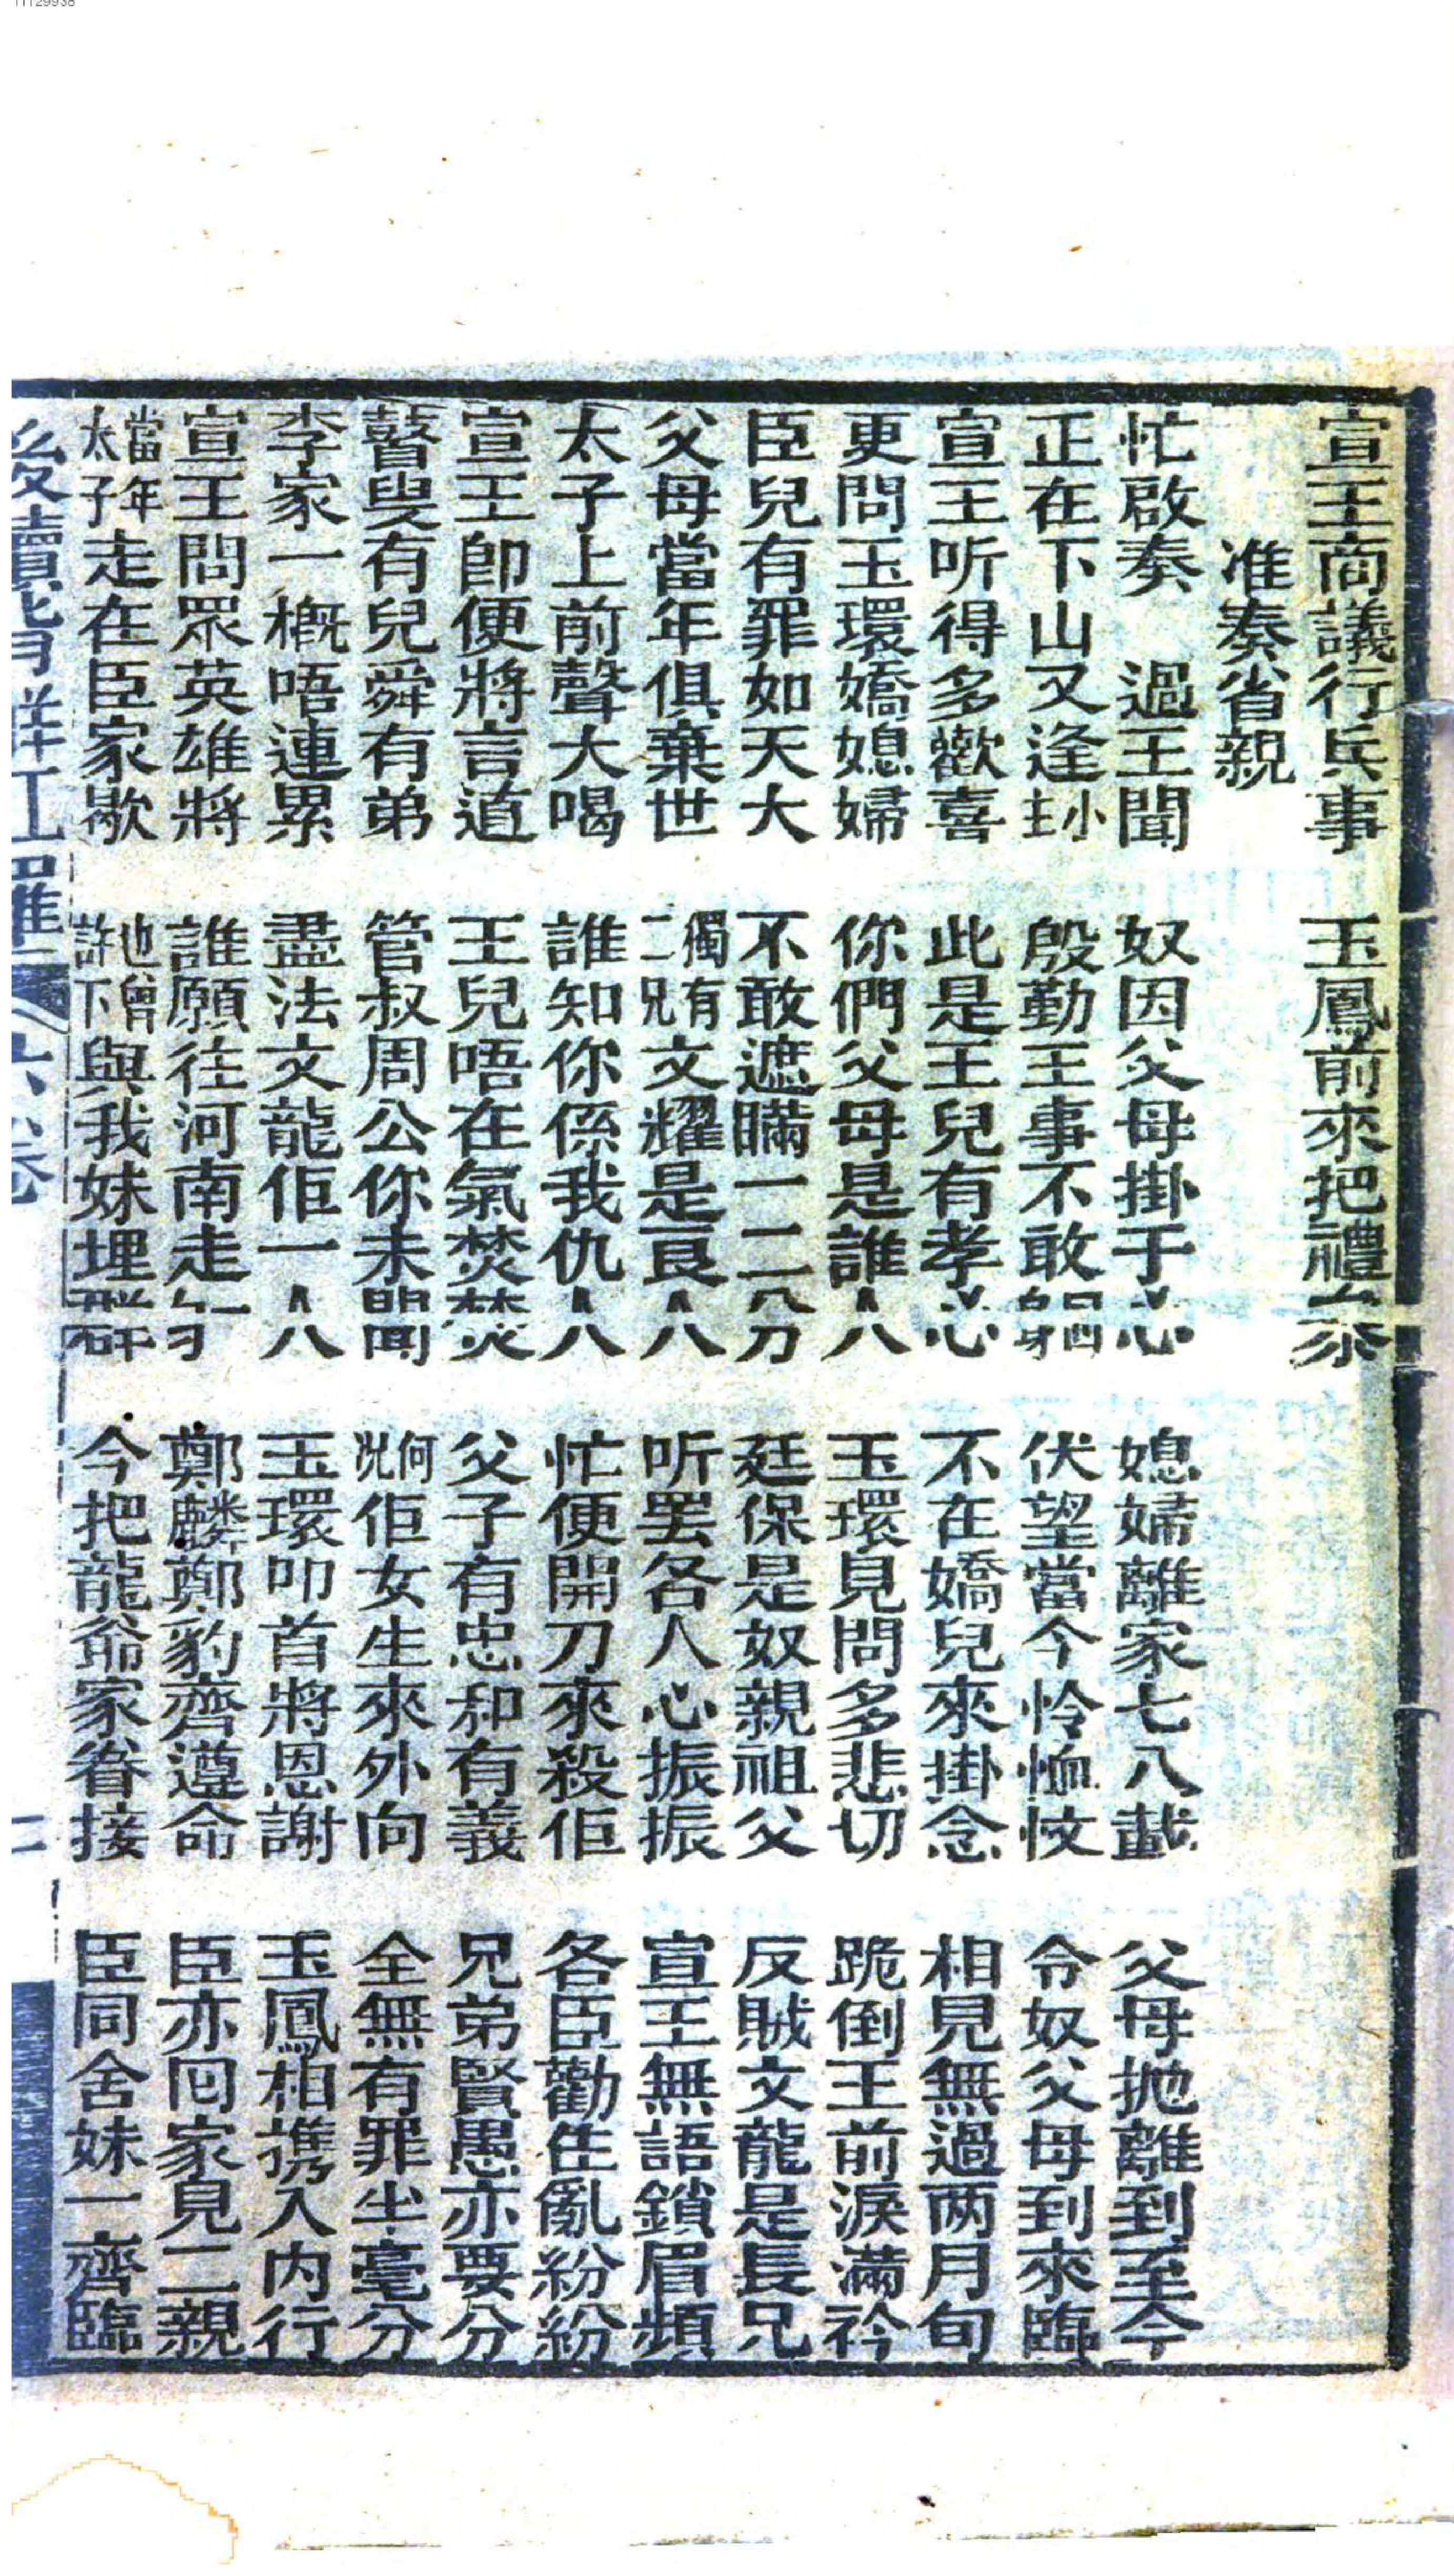 宣王商議行兵事　玉鳳前來把禮參
准奏省親
忙啟奏　過王聞　奴因父母掛于心　媳婦離家七八載　父母拋離到至今
正在下山又逢主小　殷勤王事不敢躯　伏望當今怜恤忟　令奴父母到來臨
宣王听得多歡喜　此是王兒有孝心　不在嬌兒來掛念　相見無過两月旬
更問玉環嬌媳婦　你們父母是誰人　玉環見問多悲切　跪倒王前淚滿衿
臣兒有罪如天大　不敢遮瞞一二分　廷保是奴親祖父　反賊文龍是長兄
父母當年俱棄世　獨有二兄文耀是良人　听罢各人心振振　宣王無語鎖眉頻
太子上前聲大喝　誰知你係我仇人　忙便開刀來殺佢　各臣勸住亂紛紛
宣王卽便將言道　王兒唔在氣焚焚　父子有忠和有義　兄弟賢愚亦要分
瞽叟有兒舜有弟　管叔周公你未聞　何況佢女生來外向　全無有罪半毫分
李家一概唔連累　盡法文龍佢一人　玉環叩首將恩謝　玉鳳相携入內行
宣王問眾英雄將　誰願往河南走　鄭麟鄭豹齊遵命　臣亦回家見二親
當年太子走在臣家歇　也曾許下與我妹埋群　今把龍爺家眷接　臣同舍妹一齊臨
後續背解紅羅　六卷